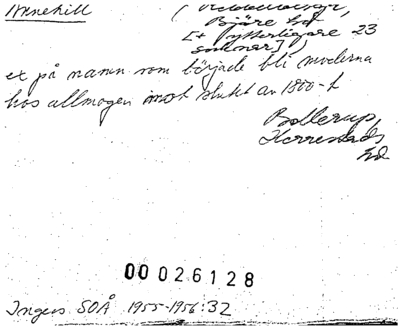 Bjäre hd
[+ ytterligare 23
socknar]
ex på namn som började bli moderna
hos allmogen mot slutet av 1800-t
Bollerup,
Herrestads
hd
00026128
Ingers SOÅ 1955-1956:32